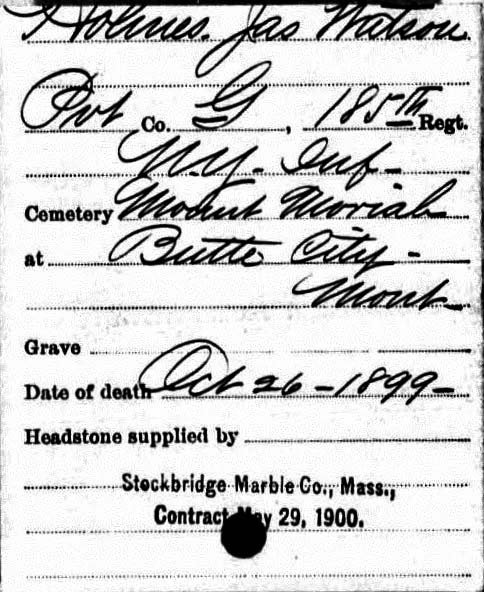 Holmes. Jas Watson
Pvt Co. G, 185th Regt.
N.Y. Inf-
Cemetery Mount Moriah
at Butte City-
Mont-
Grave
Date of death Oct 26-1899-
Headstone supplied by
Stockbridge Marble Co., Mass.,
Contract May 29, 1900.